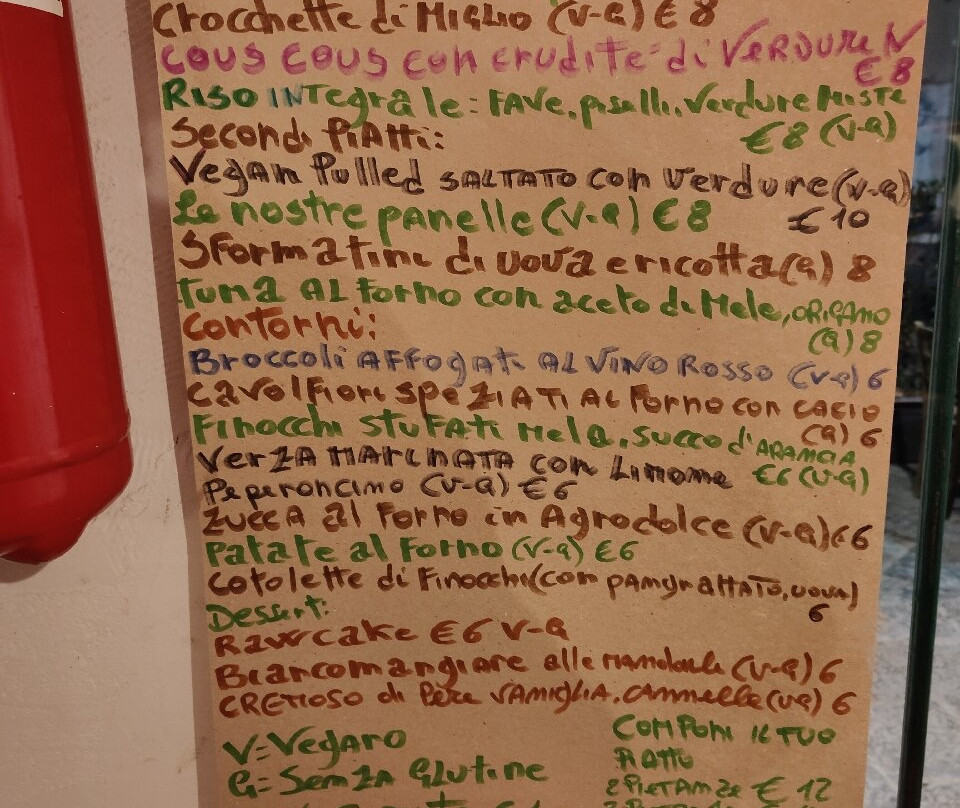 Crocchette di MIGLIO (V-G) € 8
COUS COUS con crudite' di VERDURE V
€ 8
RISO INTegrale: FAVE, piselli, verdure MISTE
€ 8 (V-G)
Secondi PIATTi:
Vegan Pulled SALTATO con verdure (V-G)
€ 10
Le nostre panelle (V-G) € 8
SFormatini di uova e ricotta (G) 8
Tuma AL Forno con aceto di Mele, ORIGANO
(G) 8
Contorni:
Broccoli AFFogati AL VINO ROSSO (V-G) 6
CAVOLFIORI SPEZIATI AL Forno con CACIO
(G) 6
Finocchi STUFATI Mela, succo d'ARANCIA
€6 (V-G)
VerZA MARINATA con Limone
Peperoncino (V-G) € 6
Zucca al Forno in Agrodolce (V-G) €6
Patate al Forno (V-G) €6
Cotolette di Finocchi (con pangrattato, uova)
6
Dessert:
Rawcake €6 V-G
Biancomangiare alle mandorle (V-G) 6
CREMOSO di Pere VANIGLIA, cannella (VG) 6
V= Vegano
G= Senza Glutine
COMPONI IL TUO
PIATTO
2 PIETANZE € 12